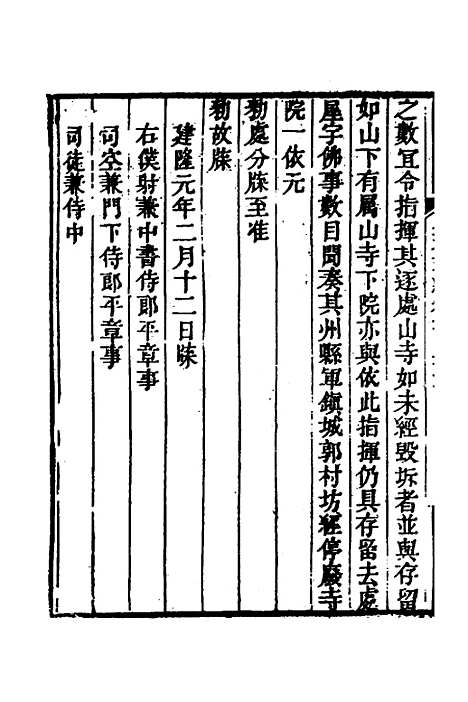 之數宜令指揮其逐處山寺如未經毁坼者並與存留
如山下有屬山寺下院亦與依此指揮仍具存留去處
屋宇佛事數目聞奏其州縣軍鎮城郭村坊經停廢寺
院一依元
勑處分牒至准
勑故牒
建隆元年二月十二日牒
右僕射兼中書侍郎平章事
司空兼門下侍郎平章事
司徒兼侍中